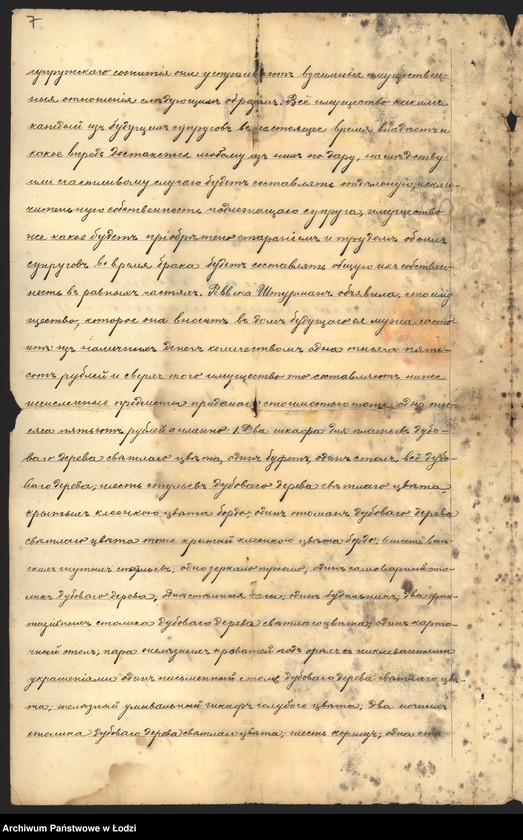 7
супружскаго сожитія они устраиваютъ взаимныя имуществен-
ныя отношенія слѣдующимъ образомъ. Всё имущество какимъ
каждый изъ будущихъ супруговъ въ настоящее время владѣетъ и
какое впредь достанется любому изъ нихъ по дару, наслѣдству
или счастливому случаю будетъ составлять отдѣльную, исклю-
чительную собственность подлежащаго супруга, имущество
же какое будетъ пріобрѣтено стараніемъ и трудомъ обоихъ
супруговъ во время брака будетъ составлять общую ихъ собствен-
ность въ равныхъ частяхъ. Реввека Штурманъ объявила, что иму-
щество, которое она вноситъ въ домъ будущаго ея мужа состо-
итъ: изъ наличныхъ денегъ количествомъ одна тысяча пять-
сотъ рублей и сверхъ того имущество это составляютъ ниже
исчисленные предметы приданаго стоимостью тоже одна ты-
сяча пятьсотъ рублей а именно: 1. Два шкафа для платьевъ дубо-
ваго дерева свѣтлаго цвѣта, одинъ буфетъ, одинъ столъ, всё дубо-
ваго дерева; шесть стульевъ дубоваго дерева свѣтлаго цвѣта,
крытыхъ клеенкою цвѣта бордо; одинъ отоманъ дубоваго дерева
свѣтлаго цвѣта тоже крытый клеенкою цвѣта бордо; шесть вѣн-
скихъ гнутыхъ стульевъ; одно зеркало трюмо, одинъ самоварный сто-
ликъ дубоваго дерева; одни стѣнные часы; одинъ будильникъ; два фан-
тазійныхъ столика дубоваго дерева свѣтлаго цвѣта; одинъ карто-
чный столъ; пара желѣзныхъ кроватей подъ орѣхъ съ никелеванными
украшеніями одинъ письменный столъ дубоваго дерева свѣтлаго цвѣ-
та; желѣзный умывальный шкафъ голубого цвѣта; два ночныхъ
столика дубоваго дерева свѣтлаго цвѣта; шесть одна
Archiwum Państwowe w Łodzi